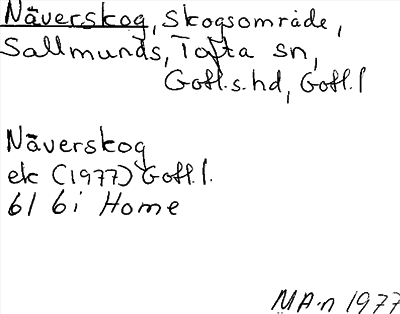 Näverskog, Skogsområde,
Sallmunds, Tofta sn,
Gotl.s.hd, Gotl.l
Näverskog
ek (1977) Gotl.l.
6I 6i Home
MA-n 1977